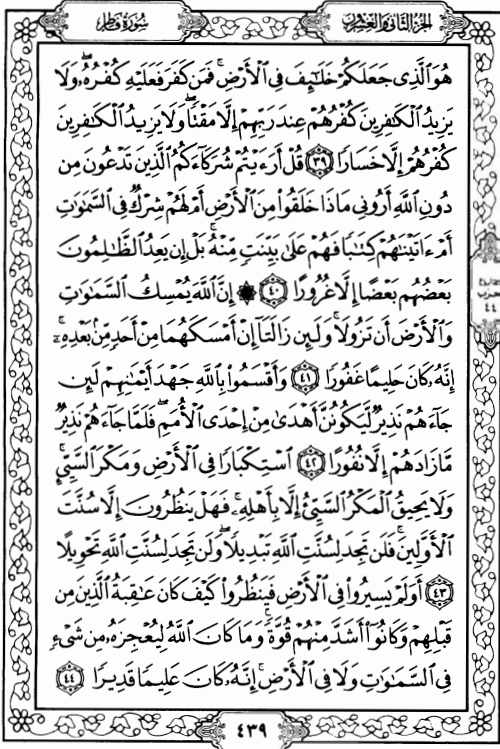 سُورَةُ فَاطِر
الجُزْءُ الثَّانِي وَالعِشْرُون
هُوَ ٱلَّذِى جَعَلَكُمْ خَلَٰٓئِفَ فِى ٱلْأَرْضِ ۚ فَمَن كَفَرَ فَعَلَيْهِ كُفْرُهُۥ ۖ وَلَا
يَزِيدُ ٱلْكَٰفِرِينَ كُفْرُهُمْ عِندَ رَبِّهِمْ إِلَّا مَقْتًا ۖ وَلَا يَزِيدُ ٱلْكَٰفِرِينَ
كُفْرُهُمْ إِلَّا خَسَارًا ٣٩ قُلْ أَرَءَيْتُمْ شُرَكَآءَكُمُ ٱلَّذِينَ تَدْعُونَ مِن
دُونِ ٱللَّهِ أَرُونِى مَاذَا خَلَقُوا۟ مِنَ ٱلْأَرْضِ أَمْ لَهُمْ شِرْكٌ فِى ٱلسَّمَٰوَٰتِ
أَمْ ءَاتَيْنَٰهُمْ كِتَٰبًا فَهُمْ عَلَىٰ بَيِّنَتٍ مِّنْهُ ۚ بَلْ إِن يَعِدُ ٱلظَّٰلِمُونَ
بَعْضُهُم بَعْضًا إِلَّا غُرُورًا ٤٠ ۞ إِنَّ ٱللَّهَ يُمْسِكُ ٱلسَّمَٰوَٰتِ
وَٱلْأَرْضَ أَن تَزُولَا ۚ وَلَئِن زَالَتَآ إِنْ أَمْسَكَهُمَا مِنْ أَحَدٍ مِّنۢ بَعْدِهِۦٓ ۚ
إِنَّهُۥ كَانَ حَلِيمًا غَفُورًا ٤١ وَأَقْسَمُوا۟ بِٱللَّهِ جَهْدَ أَيْمَٰنِهِمْ لَئِن
جَآءَهُمْ نَذِيرٌ لَّيَكُونُنَّ أَهْدَىٰ مِنْ إِحْدَى ٱلْأُمَمِ ۖ فَلَمَّا جَآءَهُمْ نَذِيرٌ
مَّا زَادَهُمْ إِلَّا نُفُورًا ٤٢ ٱسْتِكْبَارًا فِى ٱلْأَرْضِ وَمَكْرَ ٱلسَّيِّئِ ۚ
وَلَا يَحِيقُ ٱلْمَكْرُ ٱلسَّيِّئُ إِلَّا بِأَهْلِهِۦ ۚ فَهَلْ يَنظُرُونَ إِلَّا سُنَّتَ
ٱلْأَوَّلِينَ ۚ فَلَن تَجِدَ لِسُنَّتِ ٱللَّهِ تَبْدِيلًا ۖ وَلَن تَجِدَ لِسُنَّتِ ٱللَّهِ تَحْوِيلًا
٤٣ أَوَلَمْ يَسِيرُوا۟ فِى ٱلْأَرْضِ فَيَنظُرُوا۟ كَيْفَ كَانَ عَٰقِبَةُ ٱلَّذِينَ مِن
قَبْلِهِمْ وَكَانُوٓا۟ أَشَدَّ مِنْهُمْ قُوَّةً ۚ وَمَا كَانَ ٱللَّهُ لِيُعْجِزَهُۥ مِن شَىْءٍ
فِى ٱلسَّمَٰوَٰتِ وَلَا فِى ٱلْأَرْضِ ۚ إِنَّهُۥ كَانَ عَلِيمًا قَدِيرًا ٤٤
٤٤
٤٣٩